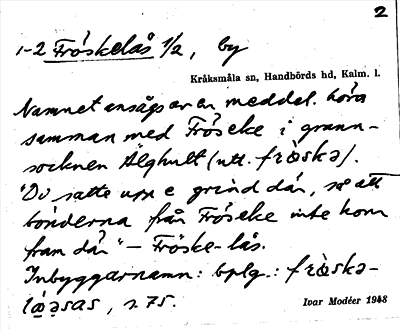 2
1-2 Fröskelås 1/2, by
Kråksmåla sn, Handbörds hd, Kalm. l.
Namnet anságs av en meddel. höra
samman med Fröseke i grann-
socknen Älghult (utt. frö̀skə).
"Do satte upp e grind där, så att
bönderna från Fröseke inte kom
fram där" – Fröske-lås.
Inbyggarnamn: bplg.: frö̀skə-
lå̀əsas, s. 75.
Ivar Modéer 1948